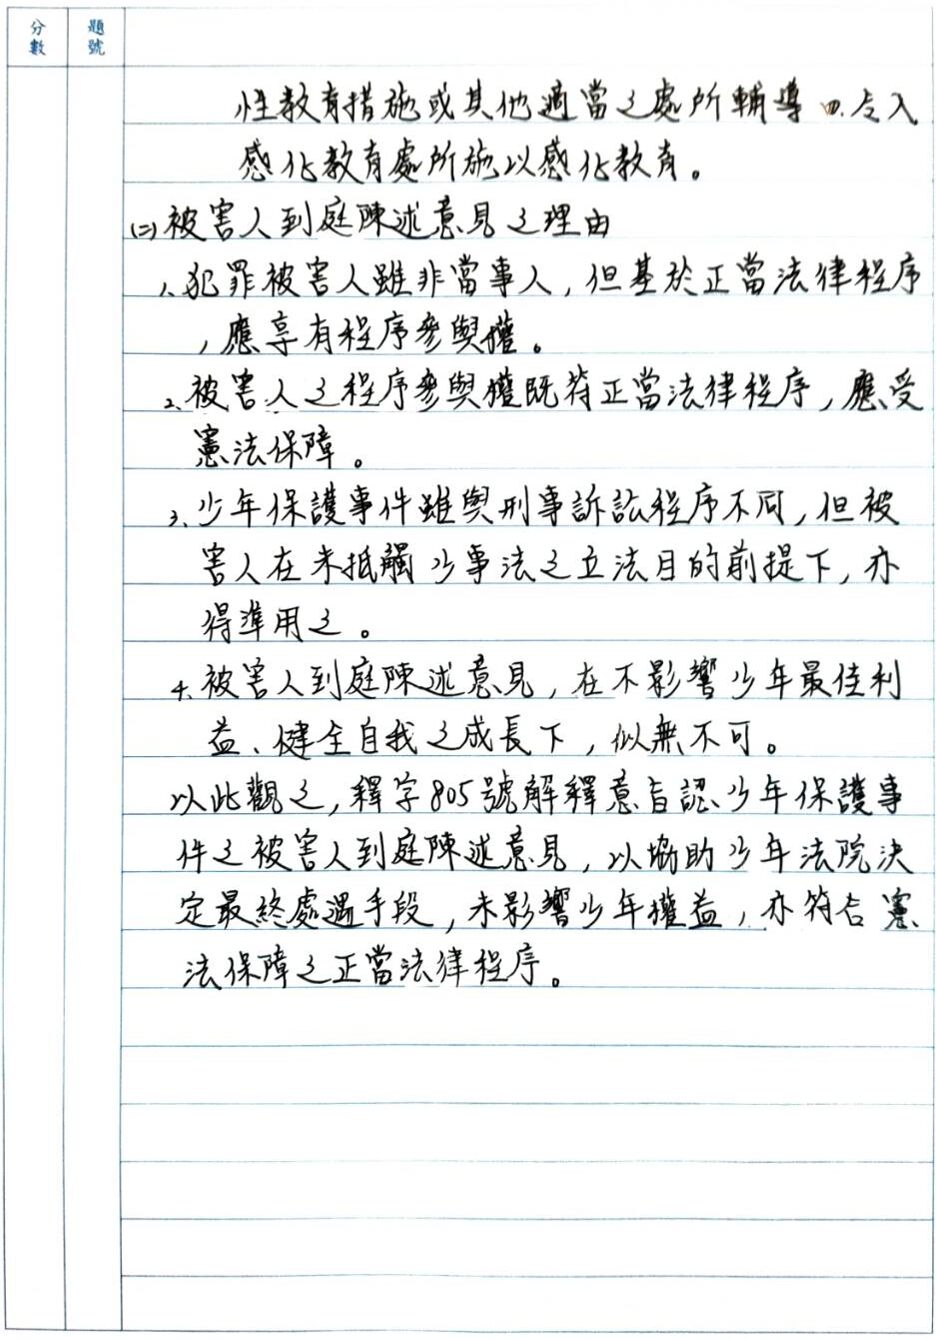 分數 題號
性教育措施或其他適當之處所輔導 四.令入
感化教育處所施以感化教育。
(二)被害人到庭陳述意見之理由
1、犯罪被害人雖非當事人,但基於正當法律程序
,應享有程序參與權。
2、被害人之程序參與權既符正當法律程序,應受
憲法保障。
3、少年保護事件雖與刑事訴訟程序不同,但被
害人在未抵觸少事法之立法目的前提下,亦
得準用之。
4、被害人到庭陳述意見,在不影響少年最佳利
益、健全自我之成長下,似無不可。
以此觀之,釋字805號解釋意旨認少年保護事
件之被害人到庭陳述意見,以協助少年法院決
定最終處遇手段,未影響少年權益,亦符合憲
法保障之正當法律程序。